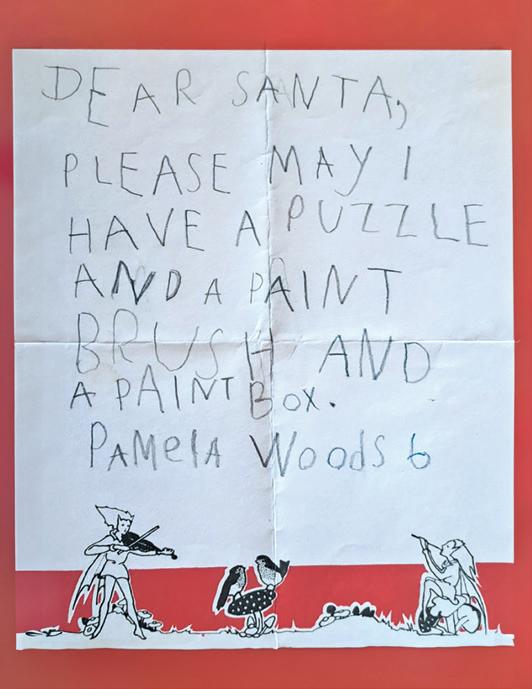 DEAR SANTA,
PLEASE MAY I
HAVE A PUZZLE
AND A PAINT
BRUSH AND
A PAINT BOX.
PAMelA Woods 6